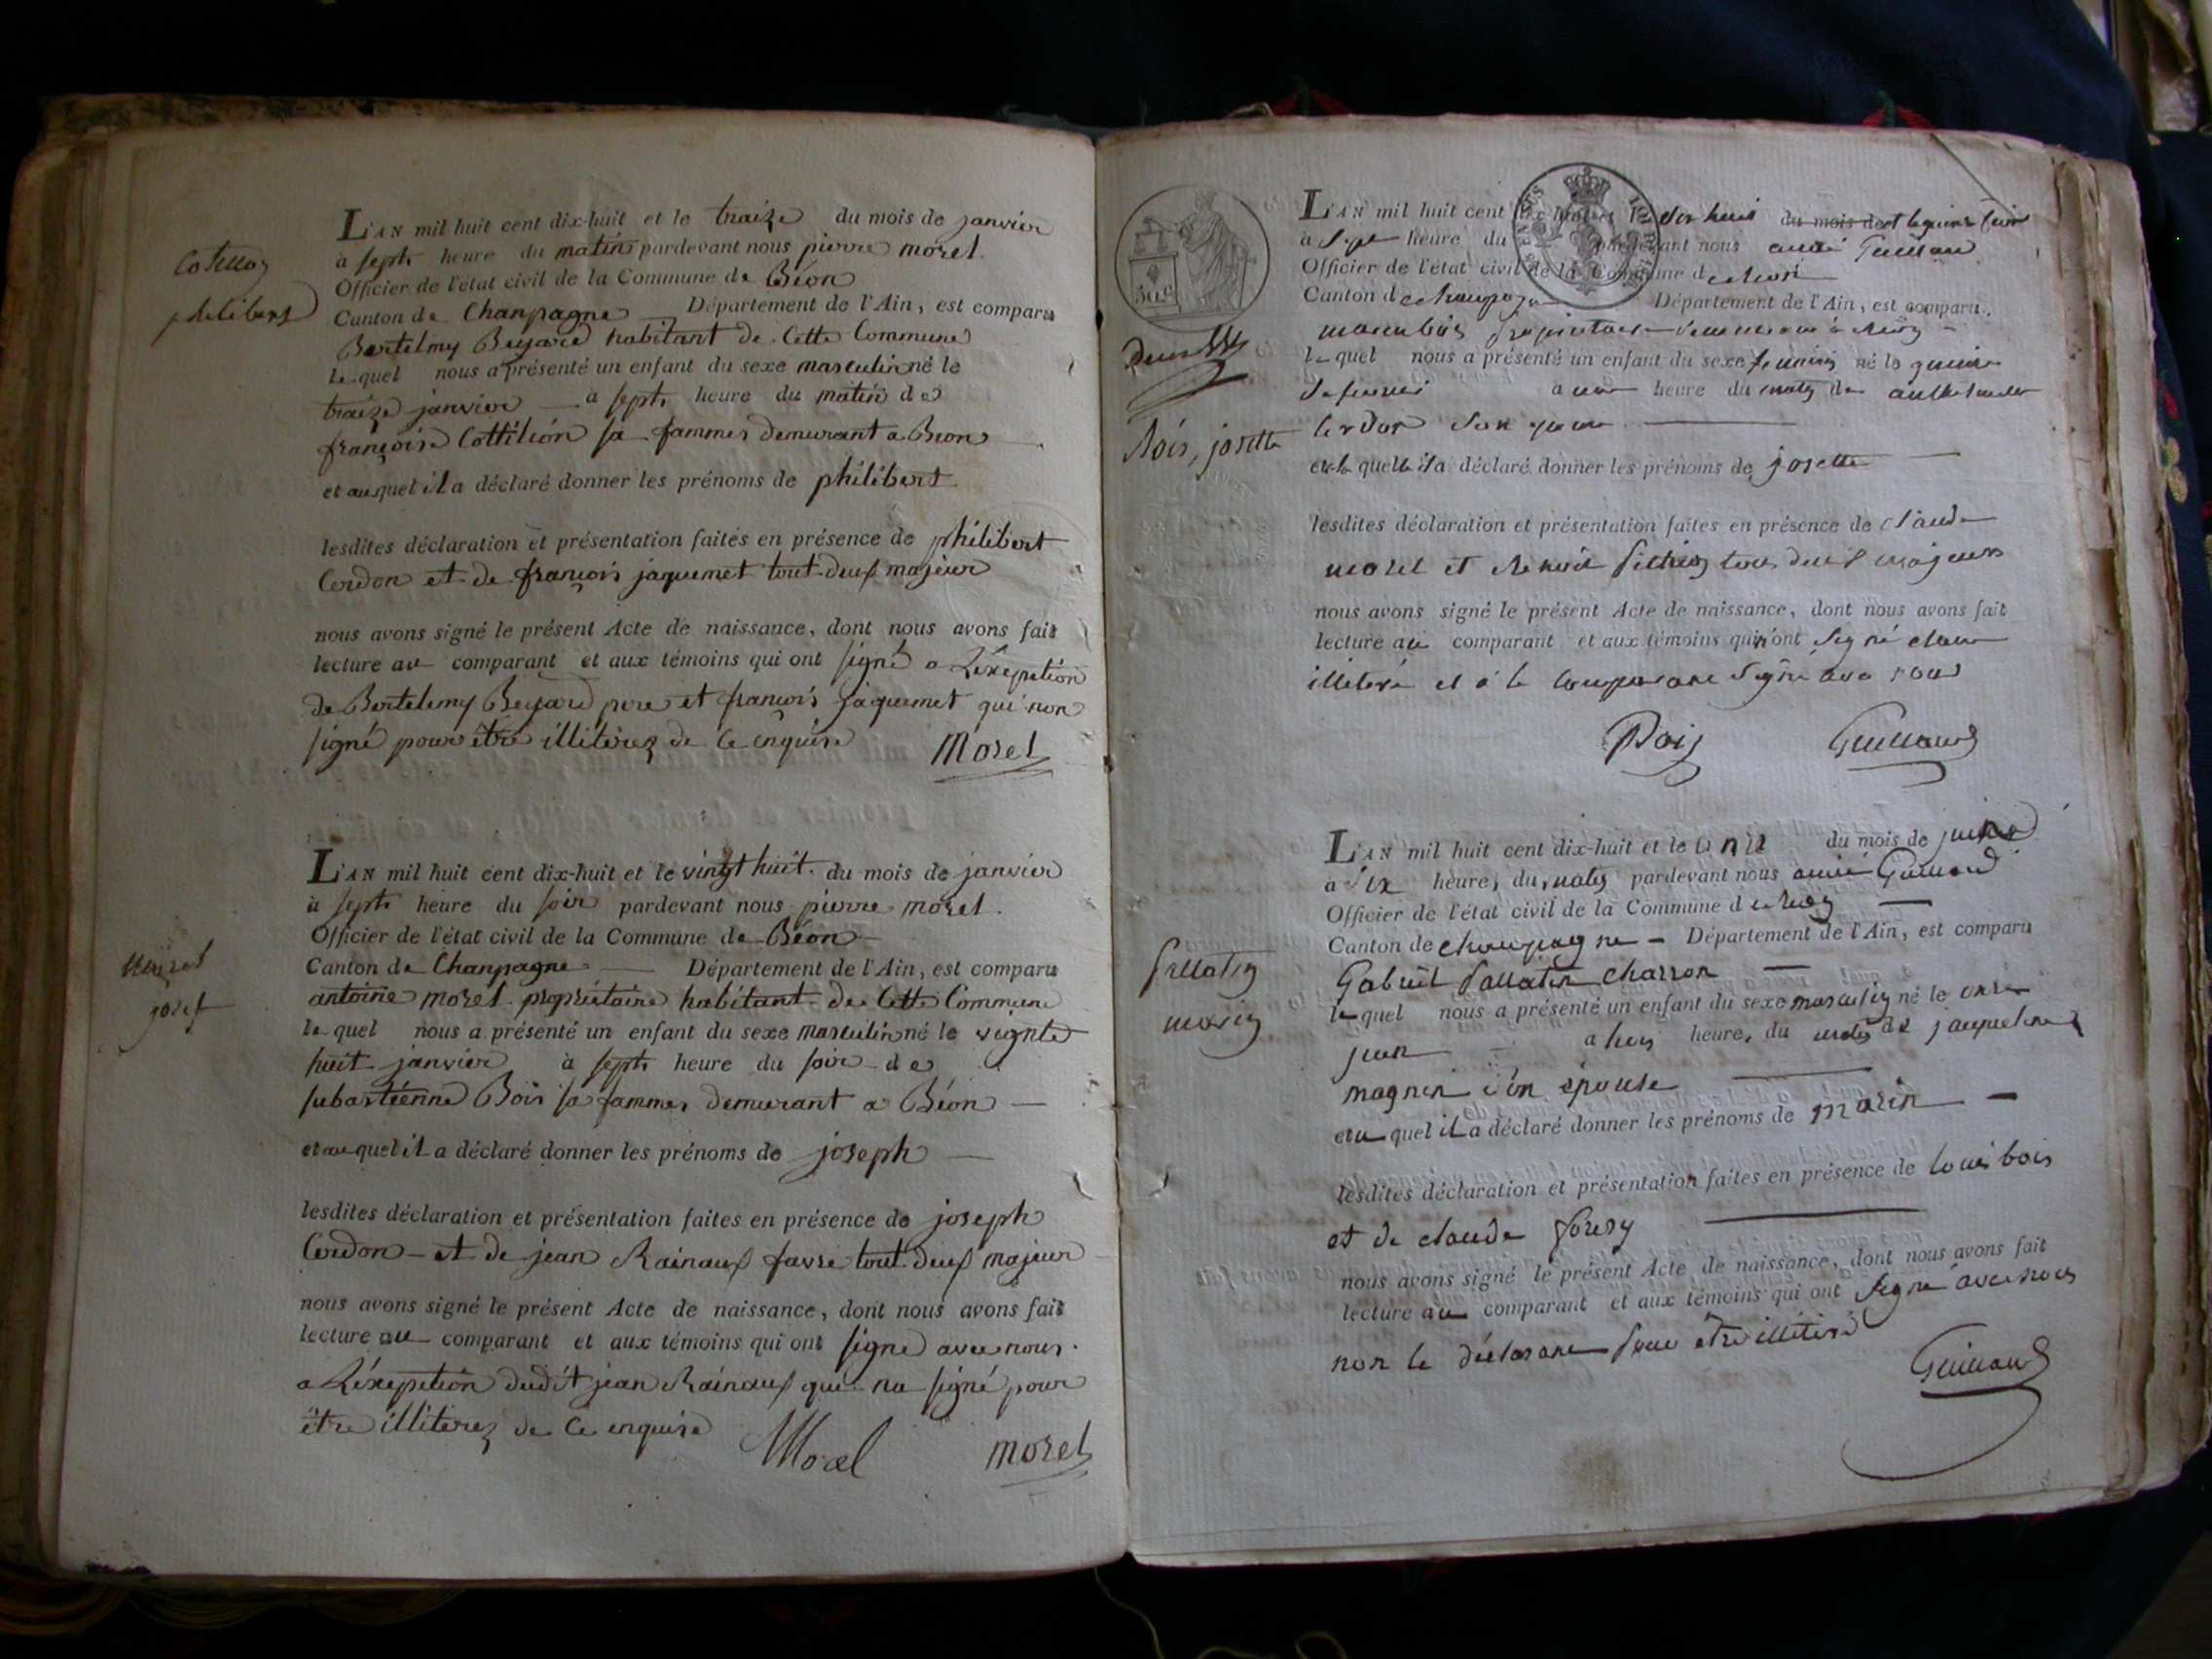 Cotillon
philibert
L'AN mil huit cent dix-huit et le traize du mois de janvier
à septs heure du matin pardevant nous pierre morel.
Officier de l'état civil de la Commune de Béon
Canton de Chanpagne Département de l'Ain, est comparu
Bertelmy Beyard habitant de Cette Commune
lequel nous a présenté un enfant du sexe masculin né le
traize janvier a septs heure du matin de
françoise Cottilion sa fammes demurant a Beon
et auquel il a déclaré donner les prénoms de philibert
lesdites déclaration et présentation faites en présence de philibert
Cerdon et de françois jaquemet tout deux majeur
nous avons signé le présent Acte de naissance, dont nous avons fait
lecture au comparant et aux témoins qui ont signé a L'éxeption
de Bertelemy Beyard pere et françois jaquemet qui non
signé pour être illiterez de ce enquise
Morel
Morel
josef
L'AN mil huit cent dix-huit et le vingt huit. du mois de janvier
à septs heure du soir pardevant nous pierre morel.
Officier de l'état civil de la Commune de Béon
Canton de Chanpagne Département de l'Ain, est comparu
antoine morel propriétaire habitant de Cette Commune
lequel nous a présenté un enfant du sexe masculin né le vignte
huit janvier à septs heure du soir de
sebastiénne Bois sa fammes demurant a Béon
et auquel il a déclaré donner les prénoms de joseph
lesdites déclaration et présentation faites en présence de joseph
Cerdon et de jean Rainaux favre tout deux majeur
nous avons signé le présent Acte de naissance, dont nous avons fait
lecture au comparant et aux témoins qui ont signé avec nous.
a L'éxeption dudit jean Rainaux qui na signé pour
être illiterez de ce enquise
Morel
morel
50 c
Bois, josette
L'AN mil huit cent dix huit
à Sept heure du pardevant nous Guillaud
Officier de l'état civil de la Commune de
Canton de champagne Département de l'Ain, est comparu
bois propriétaire
lequel nous a présenté un enfant du sexe feminin né le quinze
a une heure du matin de
Cerdon son epouse
et a la quelle il a déclaré donner les prénoms de josette
lesdites déclaration et présentation faites en présence de claude
morel et tous deux majeurs
nous avons signé le présent Acte de naissance, dont nous avons fait
lecture au comparant et aux témoins qui n'ont signé
illiteré et a le comparant Signé avec nous
Bois
Guillaud
pallatin
marin
L'AN mil huit cent dix-huit et le onze du mois de juin
à six heure, du matin pardevant nous Guillaud
Officier de l'état civil de la Commune de
Canton de champagne Département de l'Ain, est comparu
Gabriel pallatin charron
lequel nous a présenté un enfant du sexe masculin né le onze
juin a heure, du matin de jacqueline
magnin son épouse
et au quel il a déclaré donner les prénoms de marin
lesdites déclaration et présentation faites en présence de louis bois
et de claude
nous avons signé le présent Acte de naissance, dont nous avons fait
lecture au comparant et aux témoins qui ont signé avec nous
non le déclarant pour être illiteré
Guillaud